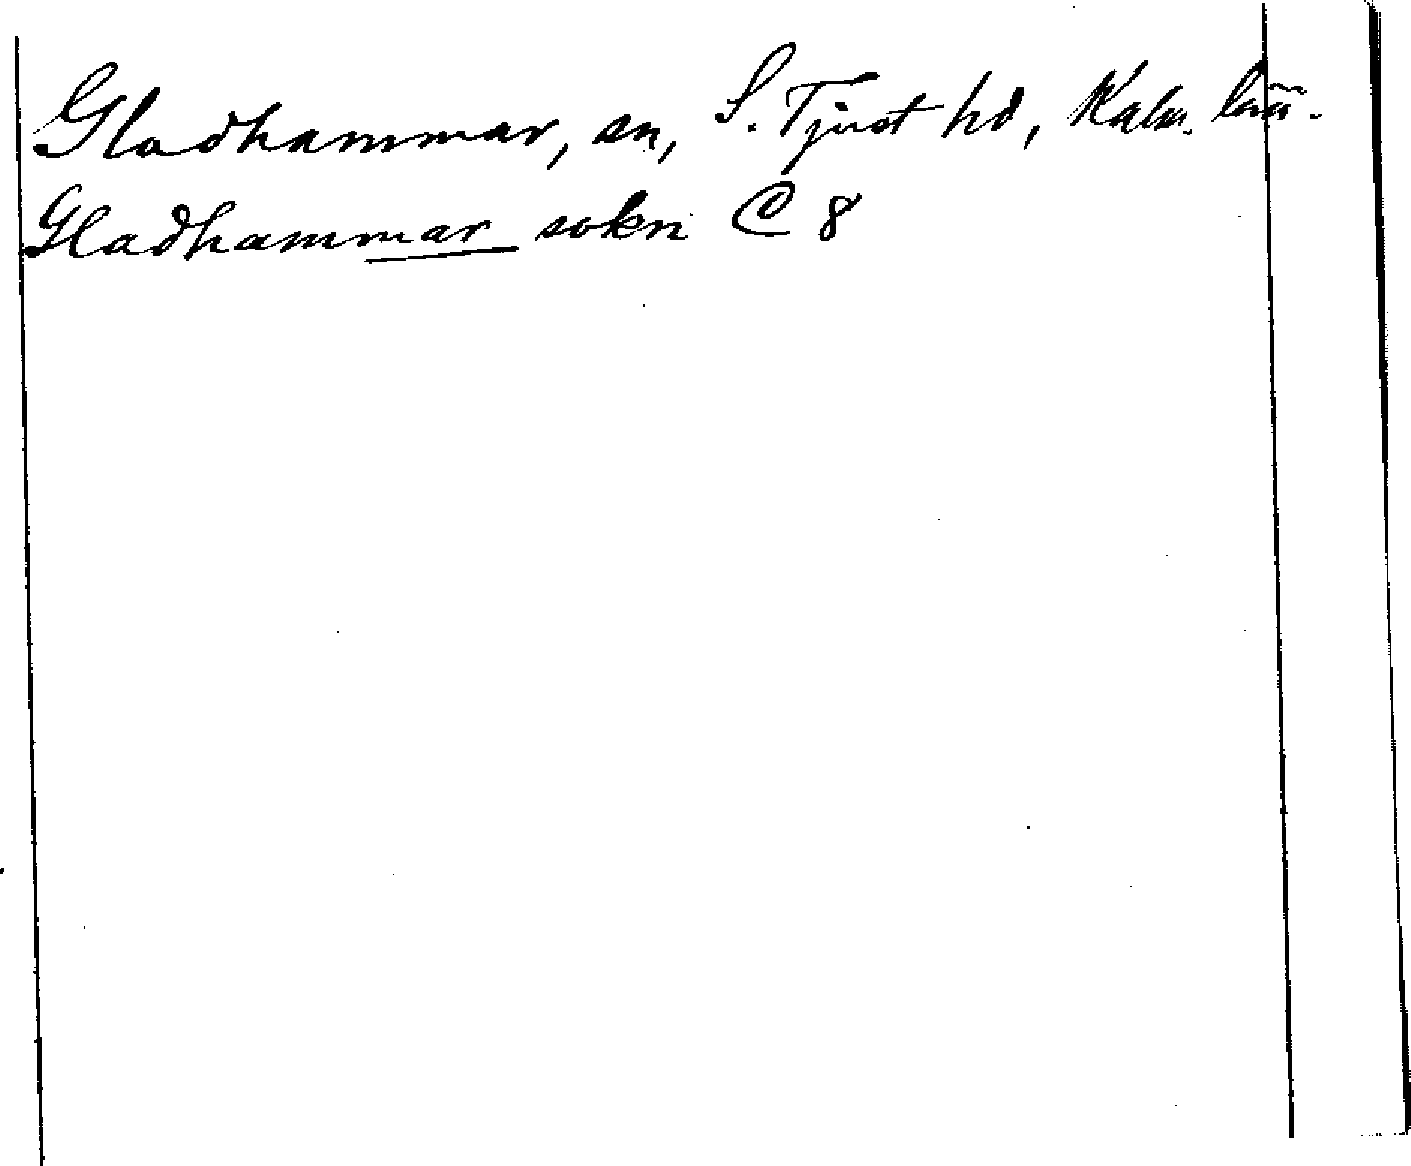 Gladhammar, sn, S. Tjust hd, Kalm. län.
Gladhammar sokn C 8